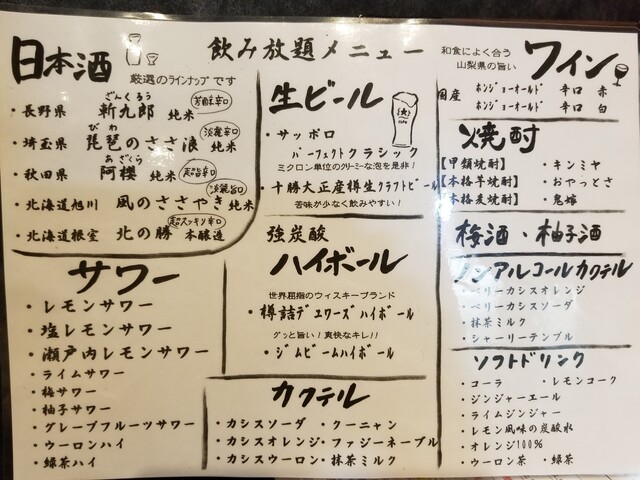 飲み放題メニュー
日本酒
厳選のラインナップです
ざんくろう
・長野県 斬九郎 純米 芳醇辛口
びわ
・埼玉県 琵琶のささ浪 純米
あざくら
・秋田県 阿櫻 純米 超旨辛口
・北海道旭川 風のささやき 純米
・北海道根室 北の勝 本醸造
生ビール
・サッポロ
パーフェクトクラシック
ミクロン単位のクリーミーな泡を是非！
・十勝大正産樽生クラフトビール
苦味が少なく飲みやすい！
和食によく合う
山梨県の旨い
ワイン
国産 ホンジョーオールド 辛口 赤
ホンジョーオールド 辛口 白
焼酎
【甲類焼酎】 ・キンミヤ
【本格芋焼酎】 ・おやっとさ
【本格麦焼酎】 ・鬼嫁
梅酒・柚子酒
サワー
・レモンサワー
・塩レモンサワー
・瀬戸内レモンサワー
・ライムサワー
・梅サワー
・柚子サワー
・グレープフルーツサワー
・ウーロンハイ
・緑茶ハイ
強炭酸
ハイボール
世界屈指のウィスキーブランド
・樽詰デュワーズハイボール
グッと旨い！爽快なキレ！！
・ジムビームハイボール
カクテル
・カシスソーダ ・クーニャン
・カシスオレンジ ・ファジーネーブル
・カシスウーロン ・抹茶ミルク
ノンアルコールカクテル
・ベリーカシスオレンジ
・ベリーカシスソーダ
・抹茶ミルク
・シャーリーテンプル
ソフトドリンク
・コーラ ・レモンコーク
・ジンジャーエール
・ライムジンジャー
・レモン風味の炭酸水
・オレンジ100%
・ウーロン茶 ・緑茶